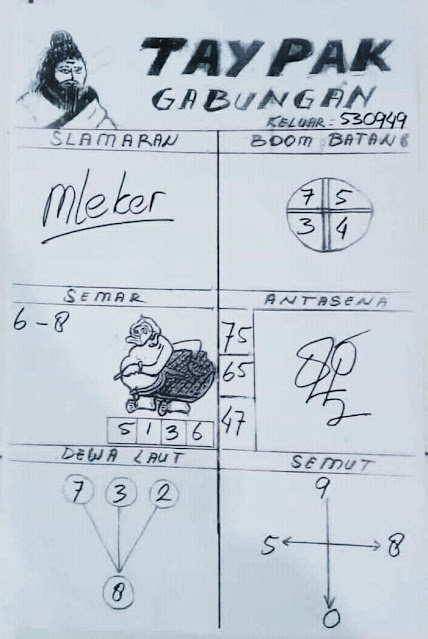 TAYPAK
GABUNGAN
KELUAR = 530949
SLAMARAN
BOOM BATANG
mleker
7 5
3 4
SEMAR
ANTASENA
6 - 8
75
65
47
5 1 3 6
DEWA LAUT
SEMUT
7 3 2
8
9
5 8
0